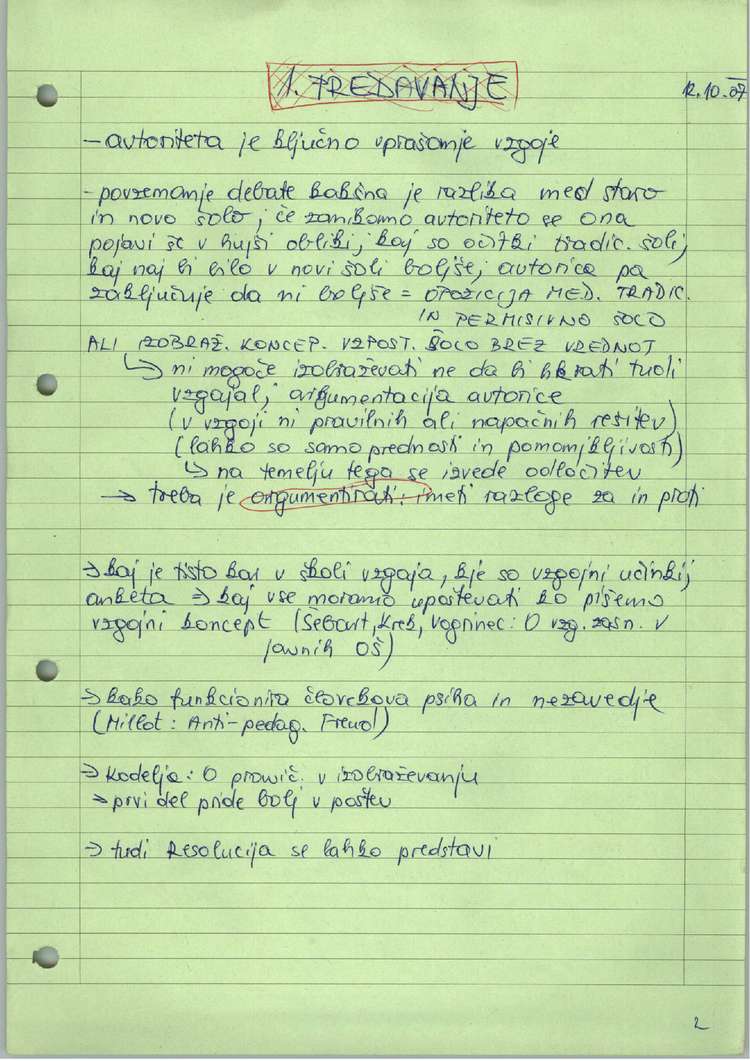 1. PREDAVANJE
12.10.07
- avtoriteta je ključno vprašanje vzgoje
- povzemanje debate kakšna je razlika med staro
in novo šolo; če zanikamo avtoriteto se ona
pojavi še v hujši obliki; kaj so očitki tradic. šoli;
kaj naj bi bilo v novi šoli boljše; avtorica pa
zaključuje da ni boljše = OPOZICIJA MED. TRADIC.
IN PERMISIVNO ŠOLO
ALI IZOBRAŽ. KONCEP. VZPOST. ŠOLO BREZ VREDNOT
↳ ni mogoče izobraževati ne da bi hkrati tudi
vzgajal; argumentacija avtorice
(v vzgoji ni pravilnih ali napačnih rešitev)
(lahko so samo prednosti in pomanjkljivosti)
↳ na temelju tega se izvede odločitev
→ treba je argumentirati: imeti razloge za in proti
→ kaj je tisto kar v školi vzgaja, kje so vzgojni učinki;
anketa → kaj vse moramo upoštevati ko pišemo
vzgojni koncept (Šebart, Krek, Vogrinec: O vzg. zasn. v
javnih OŠ)
→ kako funkcionira človekova psiha in nezavedje
(Millot: Anti-pedag. Freud)
→ Kodelja: O pravič. v izobraževanju
→ prvi del pride bolj v poštev
→ tudi Resolucija se lahko predstavi
2